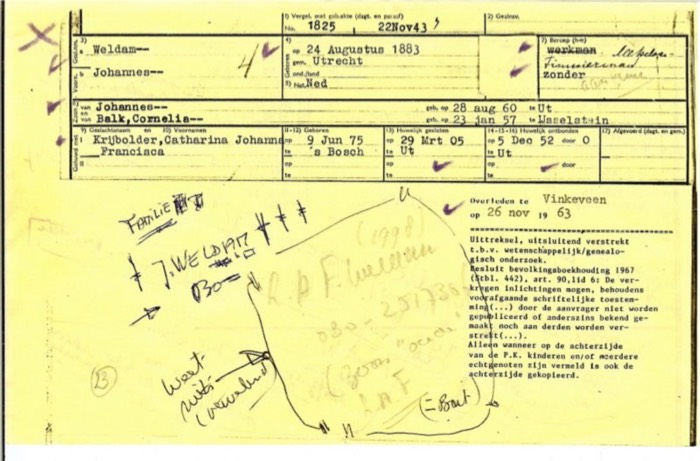 1) Vergel. met gakakte (dagt. en paraaf)
No. 1825 22Nov43
2) Gezinsv.
3)
a Weldam--
b Johannes--
4
4)
op 24 Augustus 1883
gem. Utrecht
ond./land
5) Nat. Ned
7) Beroep (h-n)
werkman
Timmerman
zonder
van Johannes-- geb. op 28 aug 60 te Ut
en van Balk, Cornelia-- geb. op 23 jan 57 te IJsselstein
9) Geslachtsnaam en 10) Voornamen
Krijbolder, Catharina Johanna
Francisca
11-12) Geboren
op 9 Jun 75
te 's Bosch
op
te
13) Huwelijk gesloten
op 29 Mrt 05
te Ut
op
te
14-15-16) Huwelijk ontbonden
op 5 Dec 52 door O
te Ut
op door
te
17) Afgevoerd (dagt. en gem.)
Overleden te Vinkeveen
op 26 nov 1963
Uittreksel, uitsluitend verstrekt
t.b.v. wetenschappelijk/genealo-
gisch onderzoek.
Besluit bevolkingsboekhouding 1967
(Stbl. 442), art. 90,lid 6: De ver-
kregen inlichtingen mogen, behoudens
voorafgaande schriftelijke toestem-
ming(...) door de aanvrager niet worden
gepubliceerd of anderszins bekend ge-
maakt noch aan derden worden ver-
strekt(...).
Alleen wanneer op de achterzijde
van de P.K. kinderen en/of meerdere
echtgenoten zijn vermeld is ook de
achterzijde gekopieerd.
FAMILIE
J. WELDAM
030
(1998)
L.A.F. Weldam
030-
(zoon "oude"
L.A.F
(= Bart)
Weet
niets
(verwand)
23